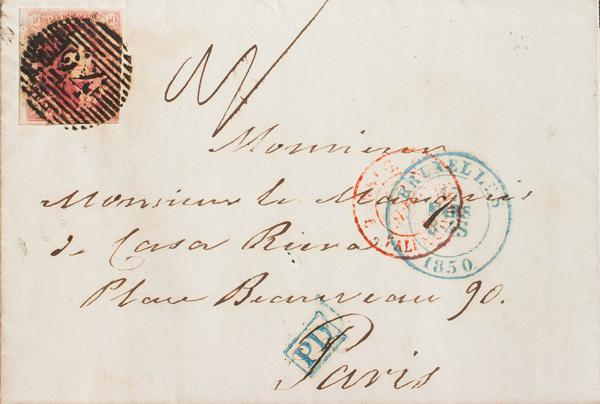 Monsieur
Monsieur le Marquis
de Casa Riera
Place Beauveau 90.
Paris
BRUXELLES
1850
PD